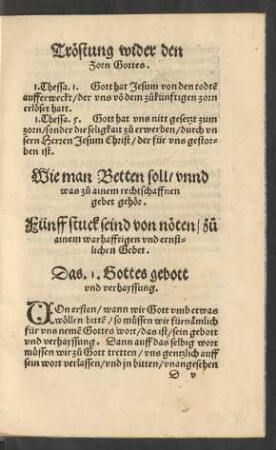 Tröstung wider den
Zorn Gottes.
1. Thessa. 1. Gott hat Jesum von den todtē
aufferweckt / der vns vō dem zůkünftigen zorn
erlöset hatt.
1. Thessa. 5. Gott hat vns nitt gesetzt zum
zorn / sonder die seligkait zů erwerben / durch vn
sern Herren Jesum Christ / der für vns gestor⸗
ben ist.
Wie man Betten soll / vnnd
was zů ainem rechtschaffnen
gebet gehör.
Fünff stuck seind von nöten / zů
ainem warhafftigen vnd ernst⸗
lichen Gebet.
Das. 1. Gottes gebott
vnd verhayssung.
VOn ersten / wann wir Gott vmb etwas
wöllen bittē / so müssen wir fürnämlich
für vns nemē Gottes wort / das ist / sein gebott
vnd verhayssung. Dann auff das selbig wort
müssen wir zů Gott tretten / vns gentzlich auff
sein wort verlassen / vnd jn bitten / vnangesehen
D v